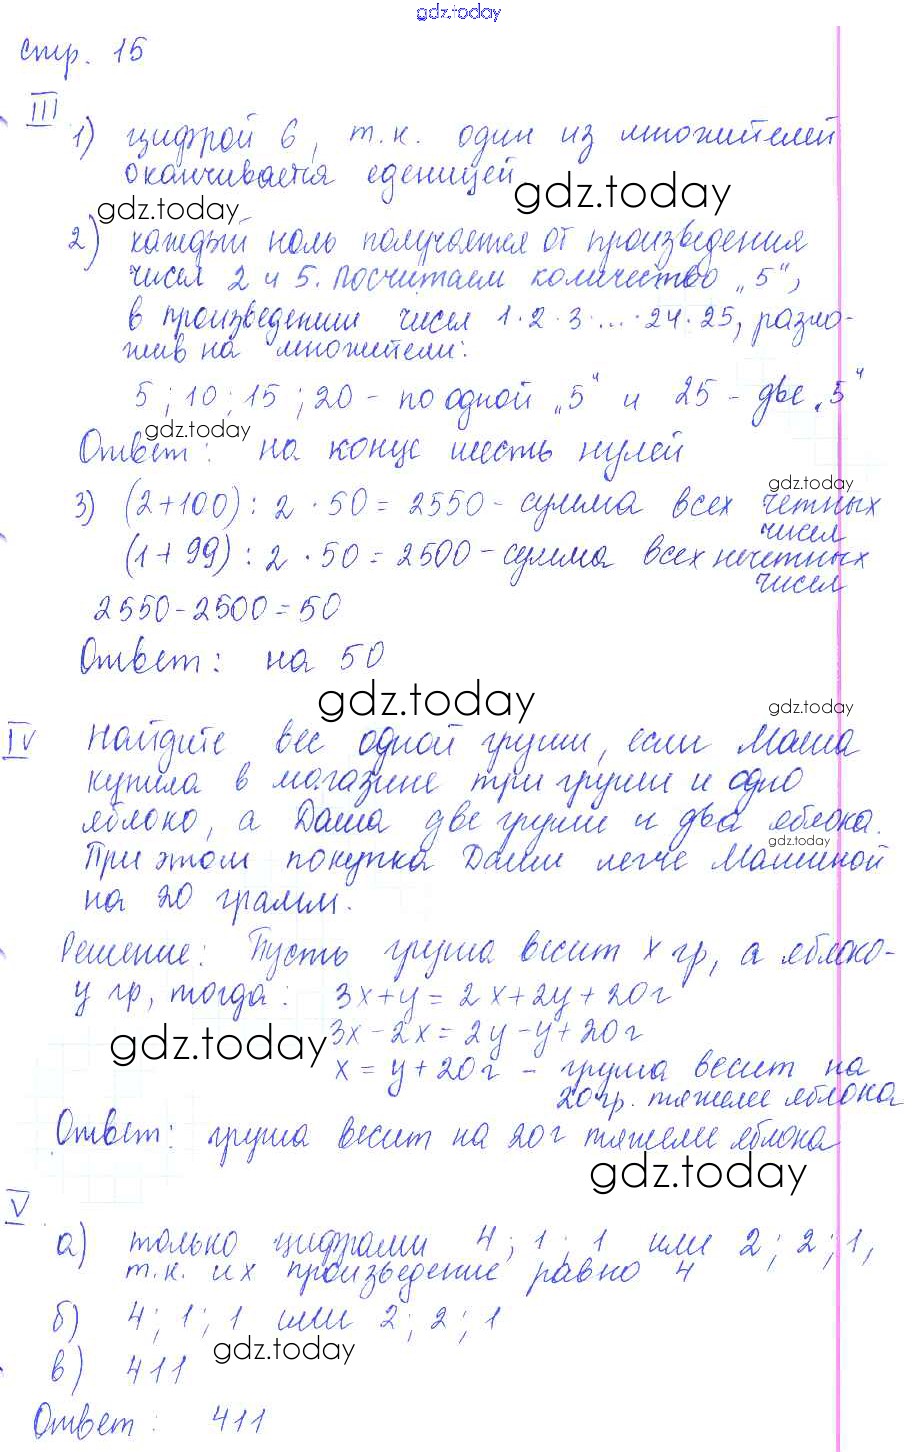 gdz.today
стр. 15
III
1) цифрой 6, т.к. один из множителей
оканчивается еденицей
gdz.today
gdz.today
2) каждый ноль получается от произведения
чисел 2 и 5. Посчитаем количество „5“,
в произведении чисел 1·2·3·...·24·25, разло-
жив на множители:
5; 10; 15; 20 - по одной „5“ и 25 - две „5“
gdz.today
Ответ: на конце шесть нулей
gdz.today
3) (2+100) : 2 · 50 = 2550 - сумма всех четных
чисел
(1 + 99) : 2 · 50 = 2500 - сумма всех нечетных
чисел
2550 - 2500 = 50
Ответ: на 50
gdz.today
gdz.today
IV Найдите вес одной груши, если Маша
купила в магазине три груши и одно
яблоко, а Даша две груши и два яблока.
gdz.today
При этом покупка Даши легче Машиной
на 20 грамм.
Решение: Пусть груша весит x гр, а яблоко-
y гр, тогда: 3x+y = 2x+2y+20г
gdz.today
3x-2x = 2y-y+20г
x = y+20г - груша весит на
20 гр. тяжелее яблока
Ответ: груша весит на 20г тяжелее яблока
gdz.today
V
а) только цифрами 4; 1; 1 или 2; 2; 1,
т.к. их произведение равно 4
б) 4; 1; 1 или 2; 2; 1
gdz.today
в) 411
Ответ: 411